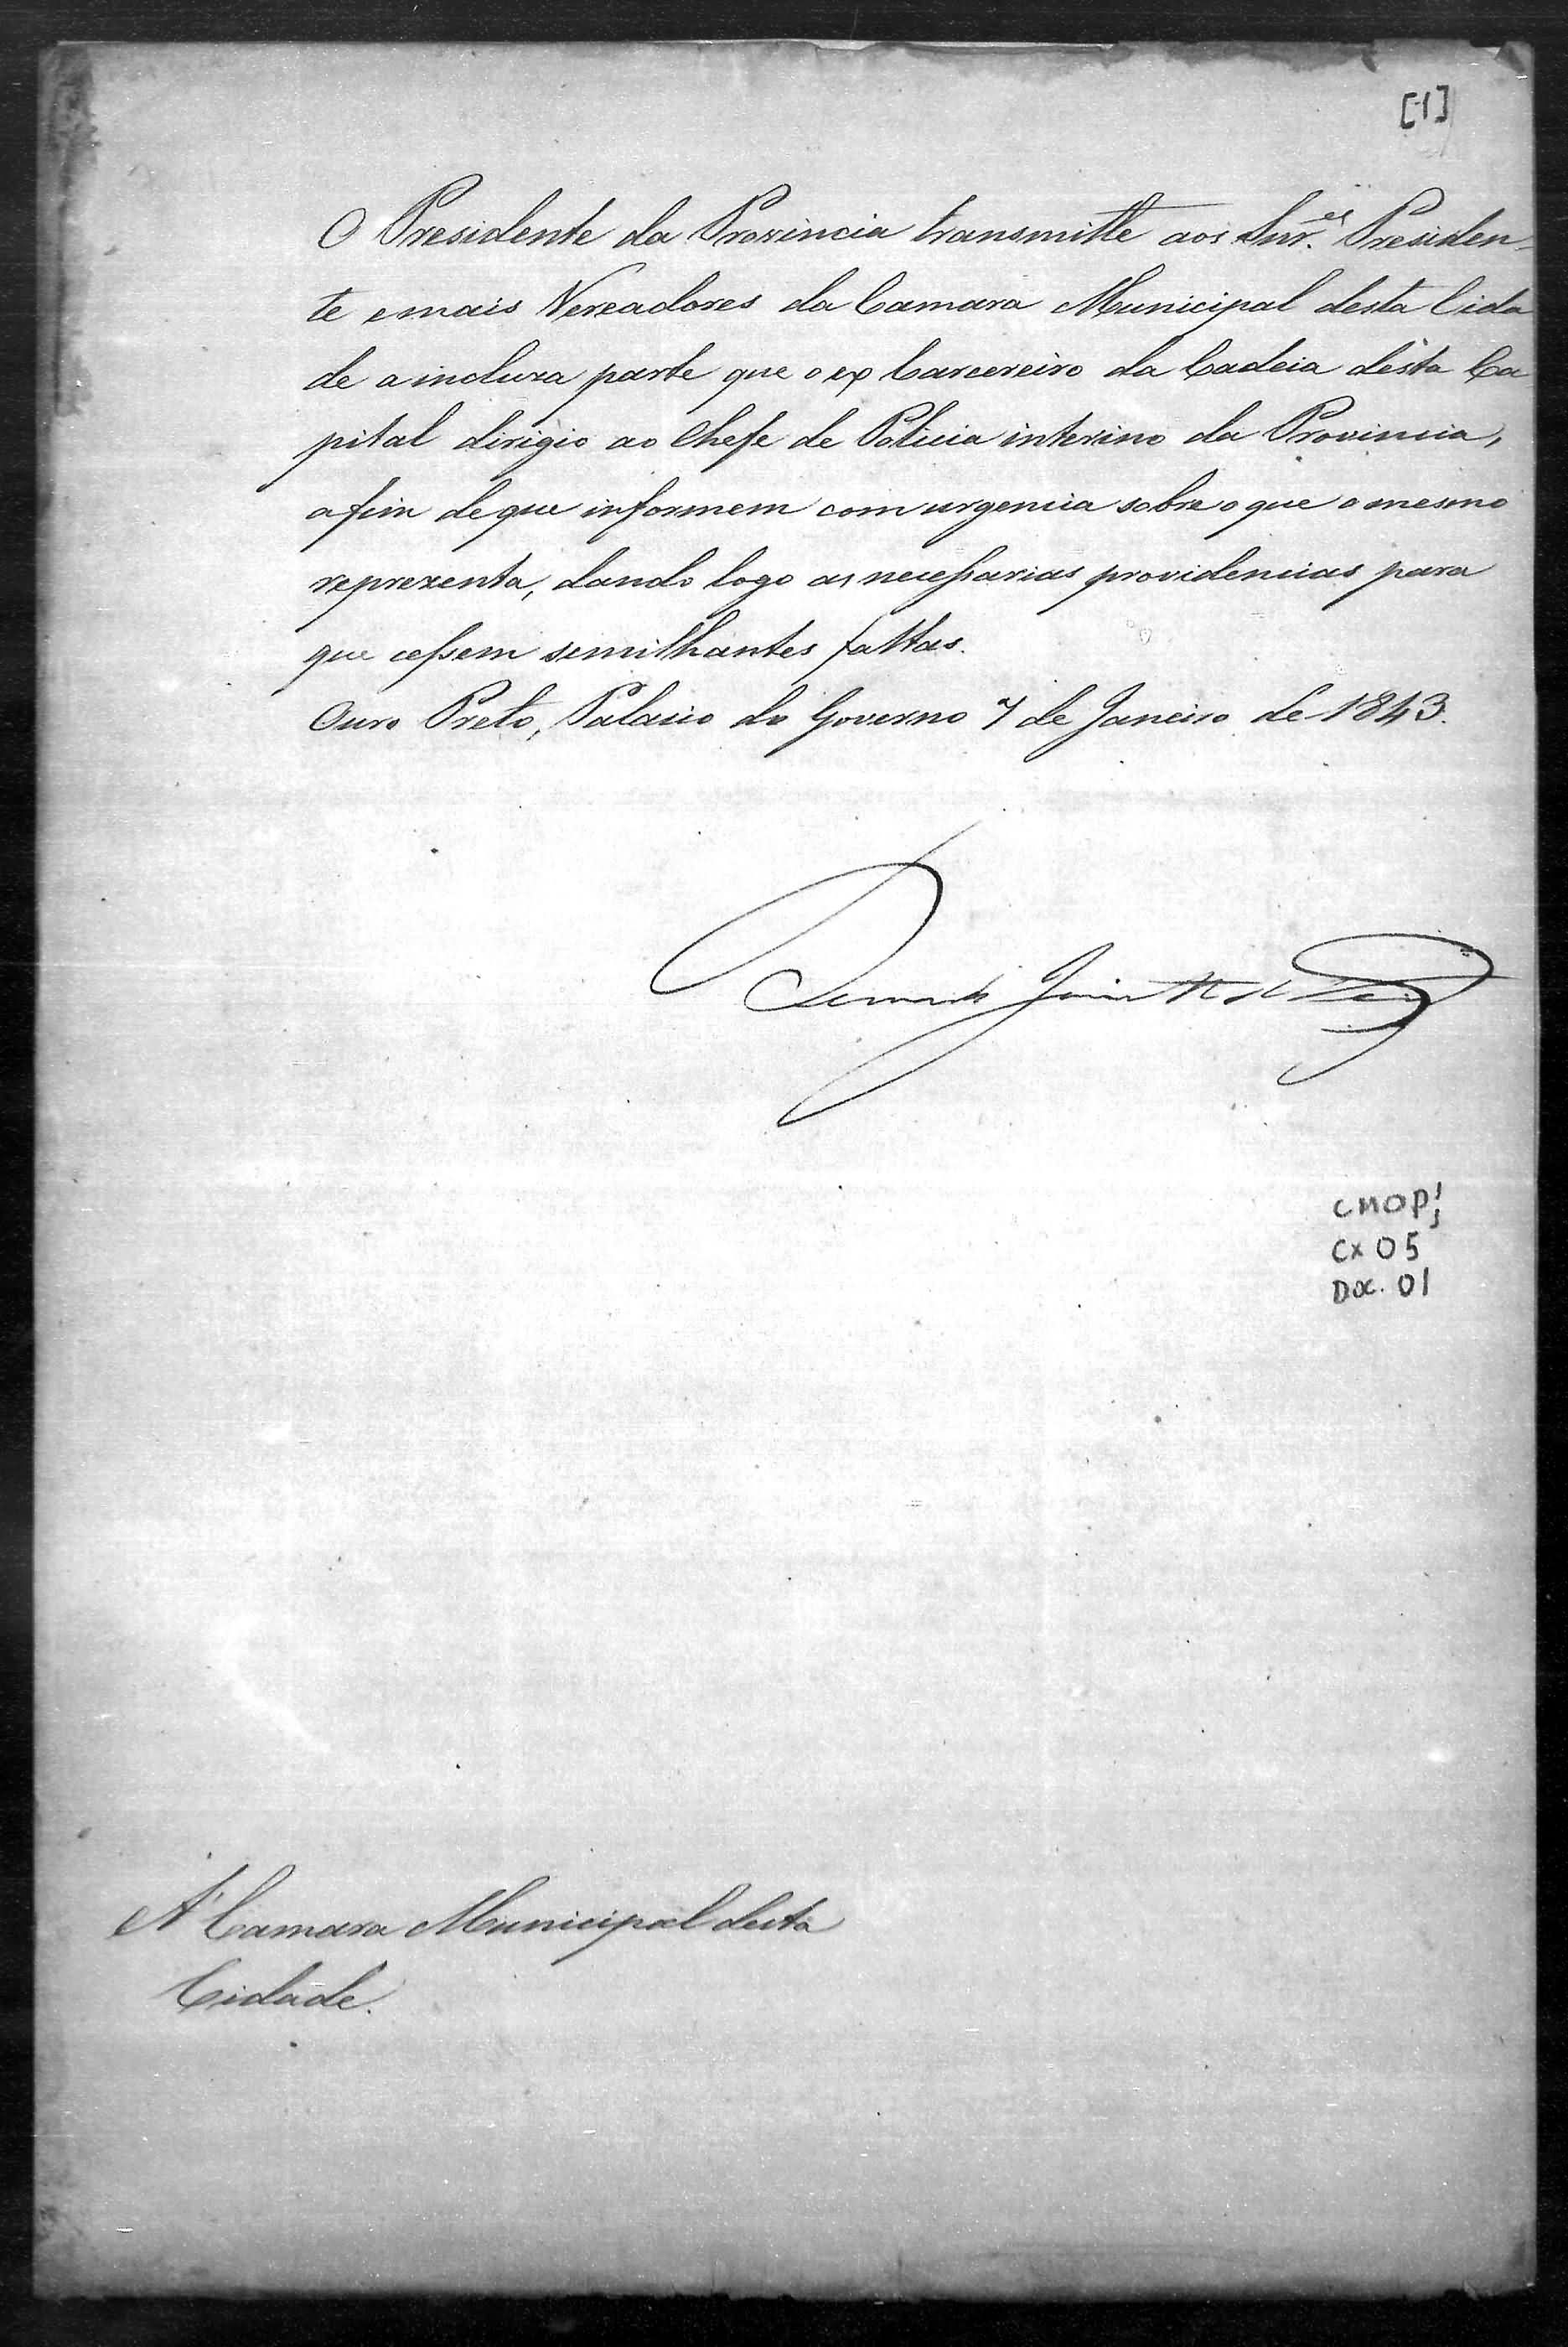 [1]
O Presidente da Provincia transmitte aos Snr.es Presiden-
te e mais Vereadores da Camara Municipal desta Cida
de a incluza parte que o ex Carcereiro da Cadeia dèsta Ca
pital dirigio ao Chefe de Policia interino da Provincia,
a fim de que informem com urgencia sobre o que o mesmo
reprezenta, dando logo as necessarias providencias para
que cessem similhantes faltas.
Ouro Preto, Palacio do Governo 7 de Janeiro de 1843.
CMOP
Cx 05
Doc. 01
A' Camara Municipal desta
Cidade.